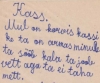 Kass.
Mul on korvis kassike
ke ta on armas minule
ta sööb kala ta joob
vett aga ta ei taha
mett.